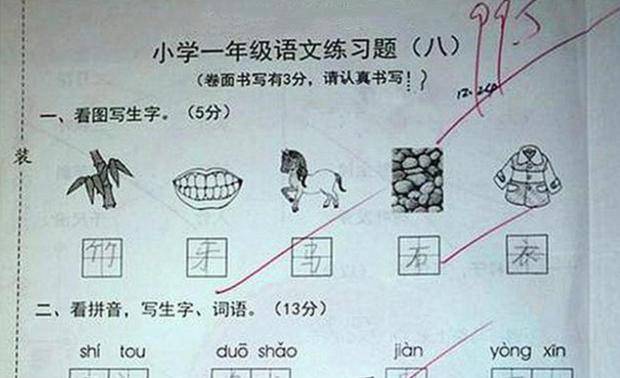 99.5
小学一年级语文练习题（八）
（卷面书写有3分，请认真书写！）
12.24
一、看图写生字。（5分）
装
竹 牙 马 石 衣
二、看拼音，写生字、词语。（13分）
shí tou duō shǎo jiàn yòng xīn